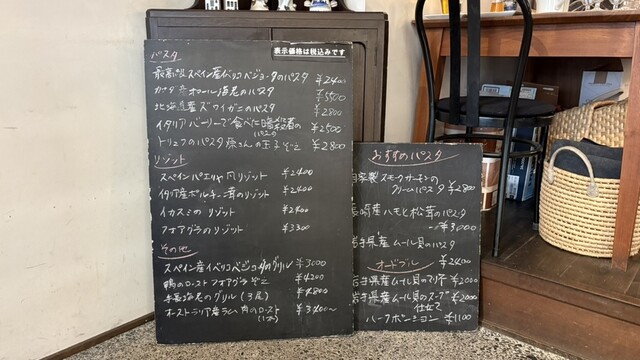 表示価格は税込みです
パスタ
最高級スペイン産イベリコベジョータのパスタ ¥2400
カナダ産オマール海老のパスタ ¥5500
北海道産ズワイガニのパスタ ¥2800
イタリア バーリーで食べた
パスタ ¥2500
トリュフのパスタ 玉子ぞえ ¥2800
リゾット
スペインパエリヤ風リゾット ¥2400
イタリア産ポルチーニ茸のリゾット ¥2400
イカスミのリゾット ¥2400
フォアグラのリゾット ¥3300
その他
スペイン産イベリコベジョータのグリル ¥3000
鴨のロースト フォアグラぞえ ¥4200
手長海老のグリル (3尾) ¥4800
オーストラリア産ラム肉のロースト ¥3400〜
おすすめパスタ
自家製スモークサーモンの
クリームパスタ ¥2800
長崎産ハモと松茸のパスタ
¥3000
岩手県産ムール貝のパスタ
¥2400
オードブル
岩手県産ムール貝のマリネ ¥2000
岩手県産ムール貝のスープ
仕立て ¥2000
ハーフポーション ¥1100